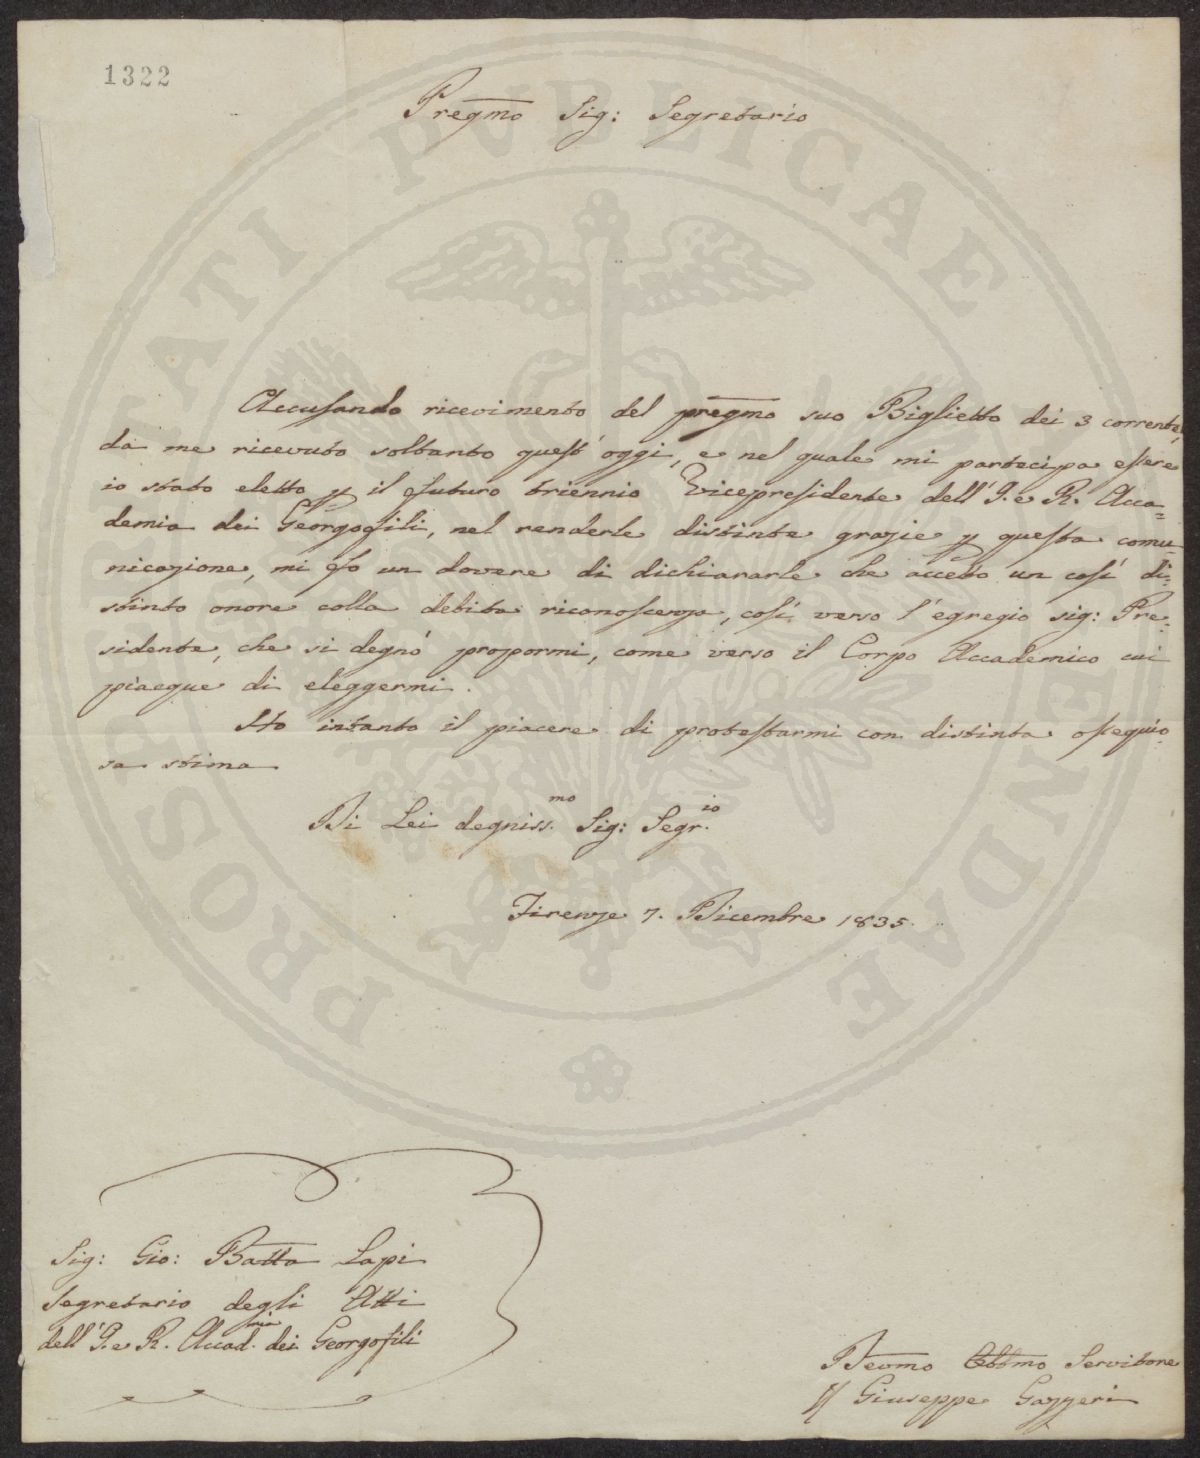 1322
Pregmo Sig: Segretario
Accusando ricevimento del pregmo suo Biglietto dei 3 corrente,
da me ricevuto soltanto quest'oggi, e nel quale mi partecipa essere
io stato eletto p il futuro triennio Vicepresidente dell'I. e R. Acca=
demia dei Georgofili, nel renderle distinte grazie p questa comu=
nicazione, mi fo un dovere di dichiararle che accetto un così di=
stinto onore colla debita riconoscenza, così verso l'egregio sig: Pre=
sidente, che si degnò propormi, come verso il Corpo Accademico cui
piacque di eleggermi.
Ho intanto il piacere di protestarmi con distinta ossequio
sa stima
Di Lei degniss.mo Sig: Segr.io
Firenze 7. Dicembre 1835.
Sig: Gio: Batta Lapi
Segretario degli Atti
dell'I. e R. Accad.mia dei Georgofili
Devmo Obbmo Servitore
Giuseppe Gazzeri
PROSPERITATI PVBLICAE AVGENDAE